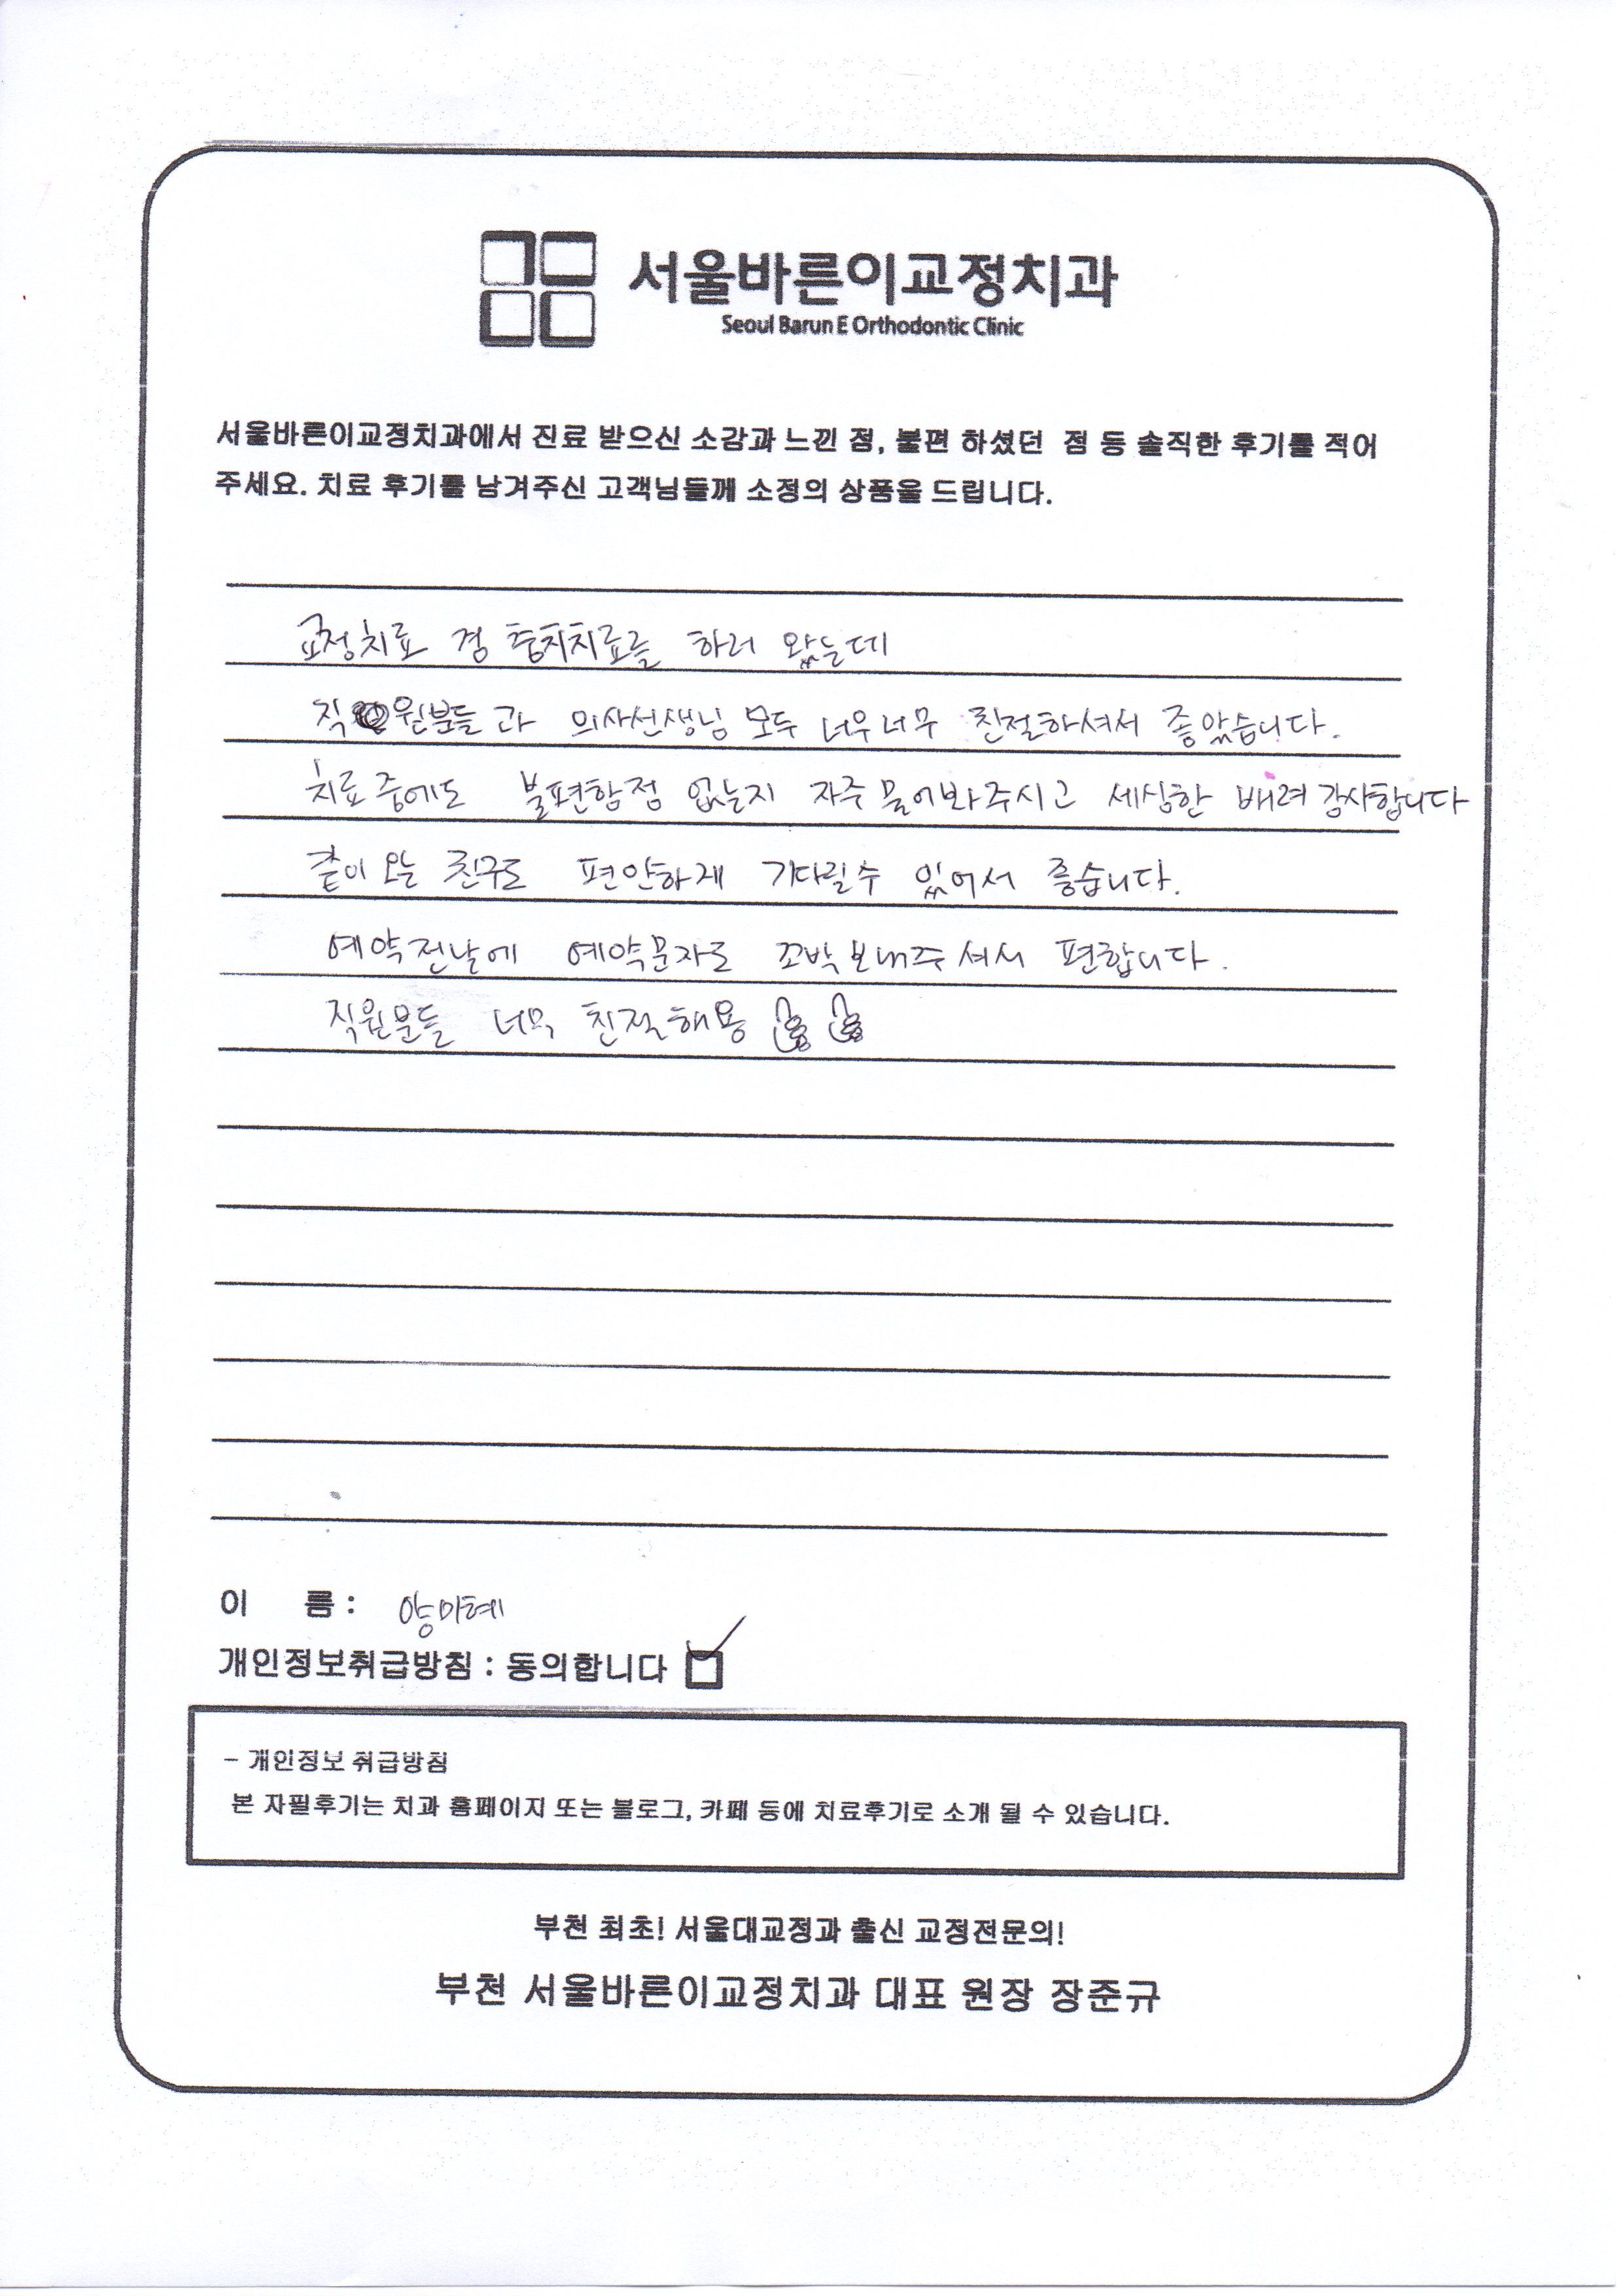 서울바른이교정치과
Seoul Barun E Orthodontic Clinic
서울바른이교정치과에서 진료 받으신 소감과 느낀 점, 불편 하셨던 점 등 솔직한 후기를 적어
주세요. 치료 후기를 남겨주신 고객님들께 소정의 상품을 드립니다.
교정치료 겸 충치치료를 하러 왔는데
직원분들과 의사선생님 모두 너무너무 친절하셔서 좋았습니다.
치료중에도 불편함점 없는지 자주 물어봐주시고 세심한 배려 감사합니다
같이 오는 친구도 편안하게 기다릴수 있어서 좋습니다.
예약전날에 예약문자도 꼬박 보내주셔서 편합니다.
직원분들 너무 친절해용
이 름 : 양미혜
개인정보취급방침 : 동의합니다
- 개인정보 취급방침
본 자필후기는 치과 홈페이지 또는 블로그, 카페 등에 치료후기로 소개 될 수 있습니다.
부천 최초! 서울대교정과 출신 교정전문의!
부천 서울바른이교정치과 대표 원장 장준규